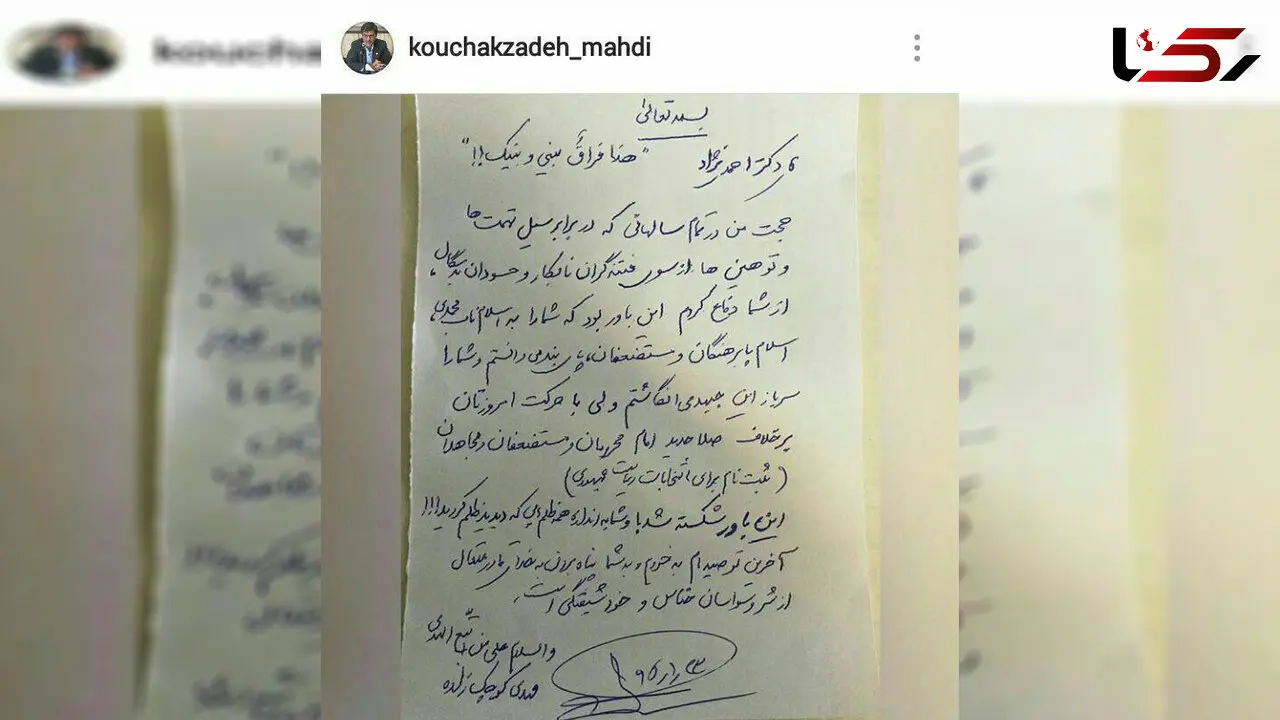 kouchakzadeh_mahdi
رکنا
بسمه تعالی
دکتر احمدی‌نژاد "هذا فراقُ بيني و بينك!!"
حجت من در تمام سالهائی که در برابر سیل تهمت ها
و توهین ها از سوی فتنه گران نابکار و حسودان بدسگال،
از شما دفاع کردم این باور بود که شما را به اسلام ناب محمدی،
اسلام پابرهنگان و مستضعفان، پای بند می دانستم و شما را
سرباز این جبهه می انگاشتم ولی با حرکت امروزتان
برخلاف صلاحدید امام محرومان و مستضعفان و مجاهدان
(ثبت نام برای انتخابات ریاست جمهوری)
این باور شکسته شد و شما به اندازه همه ظلم هایی که دیدید ظلم کردید!!!
آخرین توصیه ام به خودم و به شما پناه بردن به خدای متعال
از شر وسواسان خناس و خودشیفتگی است.
والسلام علی من اتبع الهدی
مهدی کوچک زاده